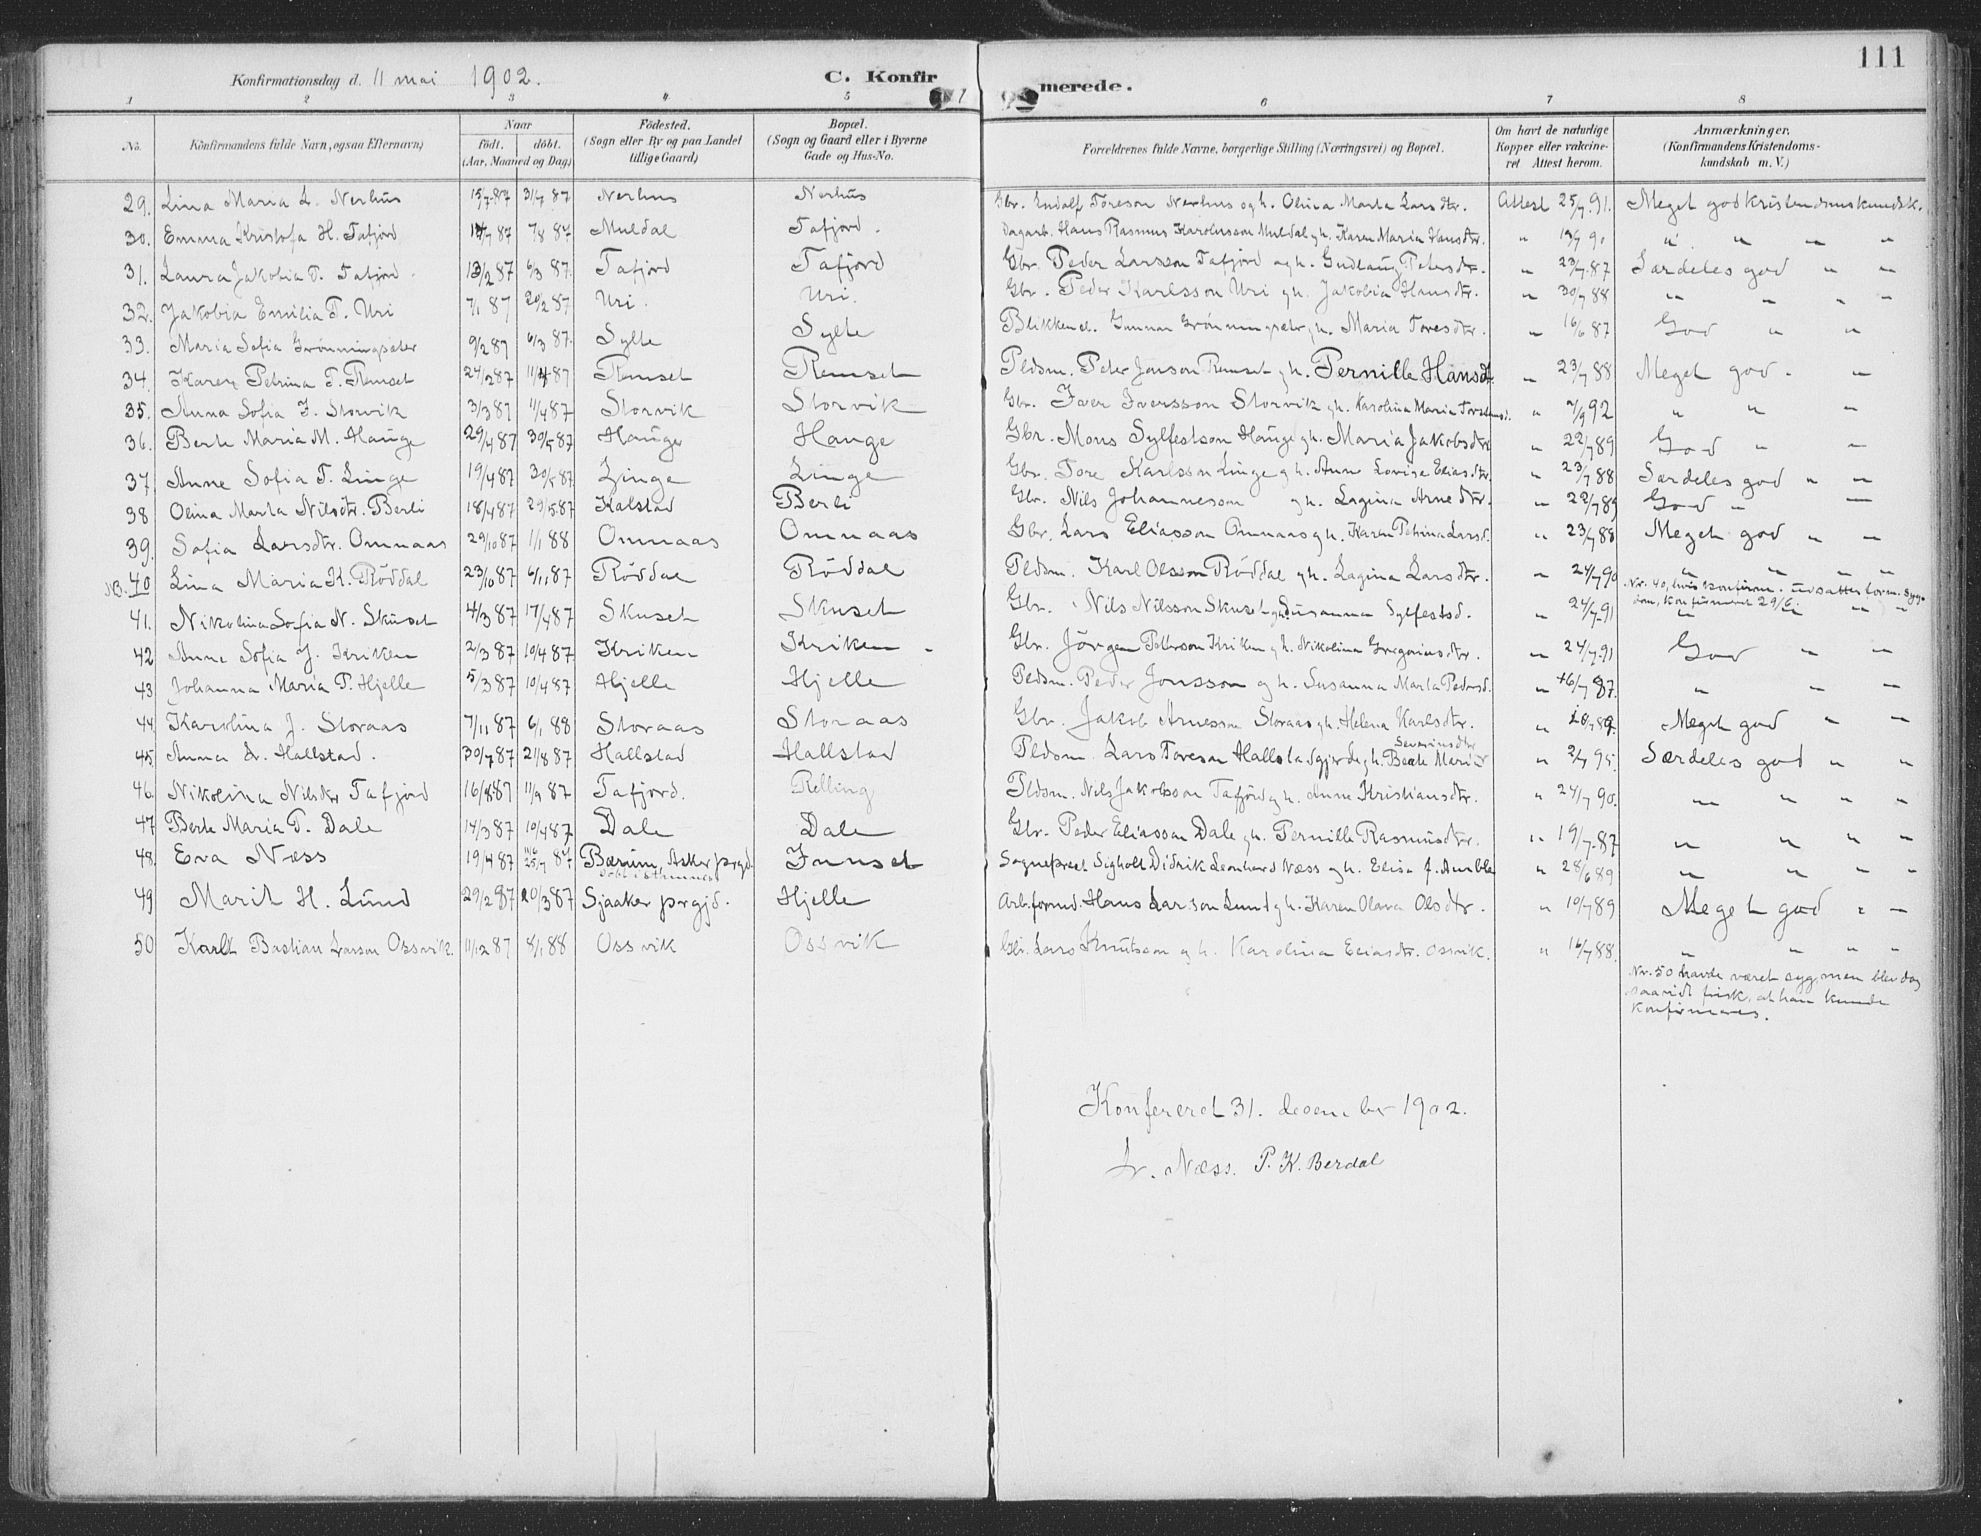 111
Konfirmationsdag d. 11 mai 1902.
C. Konfirmerede.
1 2 3 4 5 6 7 8
No. Konfirmandens fulde Navn, ogsaa Efternavn) Naar födt. döbt. (Aar, Maaned og Dag) Födested. (Sogn eller By og paa Landet tillige Gaard) Bopæl. (Sogn og Gaard eller i Byerne Gade og Hus-No. Forældrenes fulde Navne, borgerlige Stilling (Næringsvei) og Bopæl. Om havt de naturlige Kopper eller vakcineret Attest herom. Anmærkninger. (Konfirmandens Kristendomskundskab m. V.)
29. Lina Maria L. Nerhus 15/7.87 31/7 87 Nerhus Nerhus Gbr. Endolf Toreson Nerhus og h. Olina Marta Larsdtr. Attest 25/7.91. Meget god kristendomskundsk.
30. Emma Kristofa H. Tafjord 14/7 87 7/8 87 Muldal Tafjord. Dagarb. Hans Rasmus Karolusson Muldal g h. Karen Maria Hansdtr. " 19/7 90 " " " "
31. Laura Jakobia P. Tafjord. 13/2 87 6/3 87. Tafjord Tafjord Gbr. Peder Larsson Tafjord og h. Gudlaug Petersdtr. " 23/7.87 Særdeles god " "
32. Jakobia Emilia P. Uri 7/1 87 20/2 87 Uri. Uri. Gbr. Peder Karlsson Uri g h. Jakobia Hansdtr. " 30/7 88 " " " "
33. Maria Sofia Grönningsæter 9/2 87 6/3 87. Sylte Sylte Blikkensl. Gunnar Grönningsætr g h. Maria Toresdtr. " 16/6 87 God " "
34. Karen Petrina P. Remset 24/2 87 11/4 87 Remset Remset Pldsm. Peter Jonson Remset g h. Pernille Hansdt. " 23/7 88 Meget god. "
35. Anna Sofia I. Storvik 3/3 87 11/4 87 Storvik Storvik Gbr. Iver Iversson Storvik g h. Karolina Maria " 7/9 92 " " "
36. Berte Maria M. Hauge 29/4 87 30/5 87 Hauge Hauge Gbr. Mons Sylfestson Hauge g h. Maria Jakobsdtr " 22/7 89 God " "
37. Anne Sofia T. Linge 19/4 87 30/5 87 Linge Linge Gbr. Tore Karlsson Linge g h. Anne Lovise Eliasdtr. " 23/7 88 Særdeles god " "
38 Olina Marta Nilsdtr. Berli 18/4 87 29/5.87 Kalstad Berli Gbr. Nils Johanneson g h. Lagina Arnedtr. " 22/7 89 God " "
39. Sofia Larsdtr. Omnaas 29/10 87 1/1 88 Omnaas Omnaas Gbr. Lars Eliasson Omnaas g h. Karen Petrina Larsd. " 23/7 88 Meget god " "
NB. 40 Lina Maria K. Röddal 23/10 87 6/11 87 Röddal Röddal Pldsm. Karl Olsson Röddal g h. Lagina Larsdtr. " 24/7 90 " " " "
Nr. 40, hvis konfirm. udsattes form. sygdom, konfirmeret 29/6.
41. Nikolina Sofia N. Skuset 4/3 87 17/4 87 Skuset Skuset Gbr. Nils Nilsson Skuset g h. Susanna Sylfestsd. " 24/7.91 " " "
42 Anne Sofia J. Kriken 2/3 87 10/4 87 Kriken Kriken Gbr. Jörgen Peterson Kriken g h. Nikolina Gregoriusdtr. " 24/7.91 God " "
43 Johanna Maria P. Hjelle 5/3 87 10/4 87 Hjelle Hjelle Pldsm. Peder Jonsson g h. Susanna Marta Pedersd. " 16/7 87. " " "
44. Karolina J. Storaas 7/11 87 6/1 88 Storaas Storaas Gbr. Jakob Arnesson Storaas g h. Helena Karlsdtr. " Meget god " "
45. Anna L. Hallstad. 30/7 87 21/8 87 Hallstad Hallstad Pldsm. Lars Toreson Hallstadgjerde g h. Beate Maria Severinsdtr " 2/7 95. Særdeles god " "
46. Nikolina Nilsdtr Tafjord 16/8 87 11/9 87 Tafjord. Relling Pldsm. Nils Jakobsson Tafjord g h. Anne Kristiansdtr. " 24/7 90. " " " "
47 Berte Maria P. Dale 14/3 87 10/4 87 Dale Dale Gbr. Peder Eliasson Dale g h. Pernille Rasmusdtr. " 19/7.87 " " " "
48. Eva Næss 19/4 87 25/7 87 Bærum, Asker prgjd. Innset Sogneprest Sigholt Didrik Leonhard Næss og h. Elisa J. Aunble " 28/6 89 " " " "
49 Marit H. Lund 29/2 87 20/3 87 Sjaaker prgjd. Hjelle Arb.formd. Hans Larson Lund g h. Karen Olava Olsdtr. " 10/7 89 Meget god " "
50 Karl Bastian Larson Ossvik. 11/12 87 8/1 88 Ossvik Ossvik Gbr. Lars Knutson og h. Karolina Eliasdtr. Osvik. " 16/7 88. " " " "
Nr. 50 havde været syg, men blev dog
saavidt frisk, at han kunde
konfirmeres.
Konfereret 31. desember 1902.
Lr. Næss. P. K. Berdal